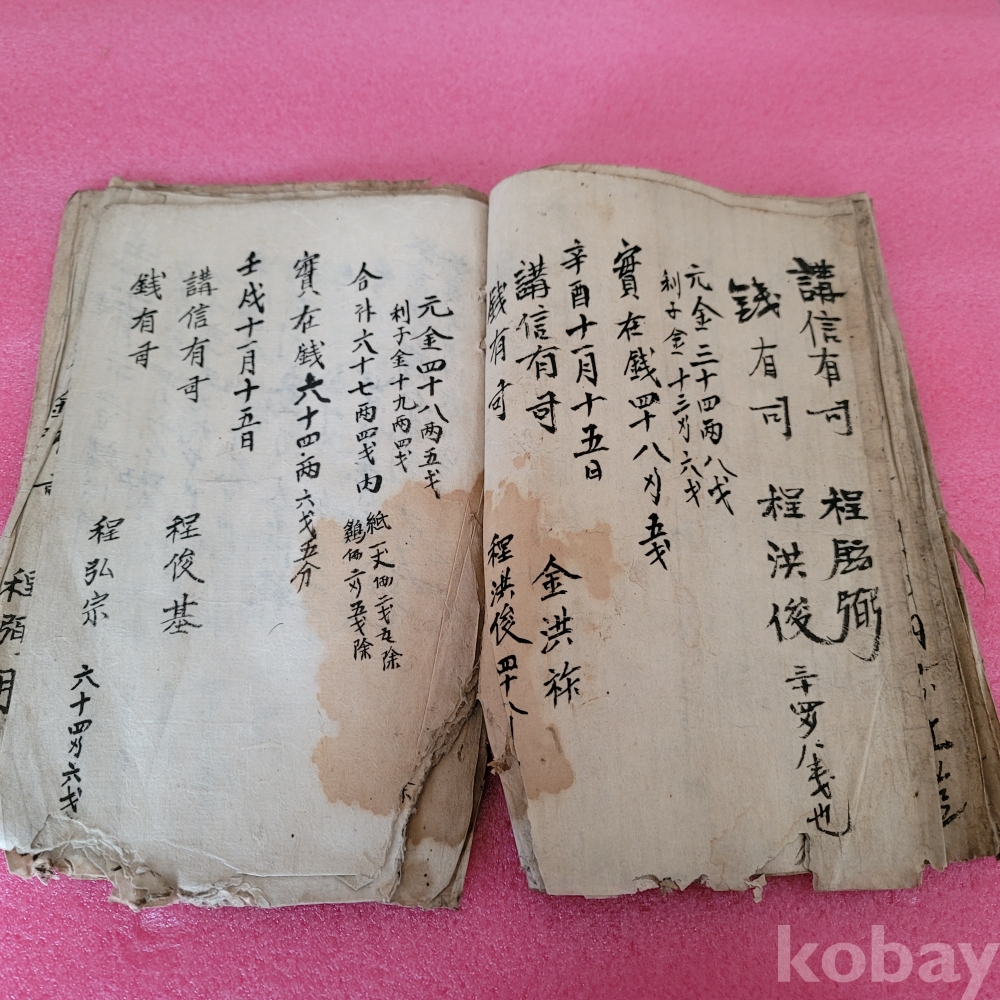 講信有司 程 弼
錢有司 程洪俊 三十四刄八戔也
元金三十四兩八戋
利子金十三刄六戋
實在錢四十八刄五戋
辛酉十一月十五日
講信有司 金洪祚
錢有司 程洪俊 四十八
元金四十八兩五戋
利子金十九兩四戋
合計六十七兩四戋內 紙一丈価二戋五除
鷄価二刄五戋除
實在錢六十四兩六戋五分
壬戌十一月十五日
講信有司 程俊基
錢有司 程弘宗 六十四刄六戋
kobay